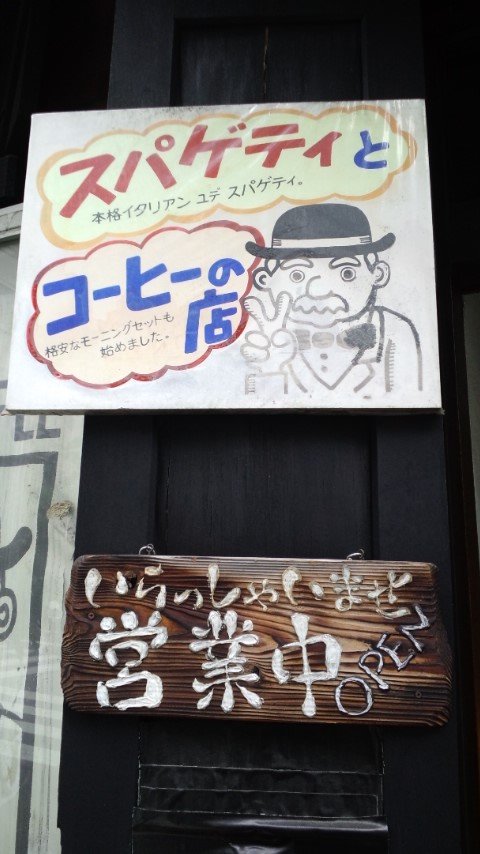 スパゲティと
本格イタリアン ユデ スパゲティ。
コーヒーの
店
格安なモーニングセットも
始めました。
いらっしゃいませ
営業中
OPEN